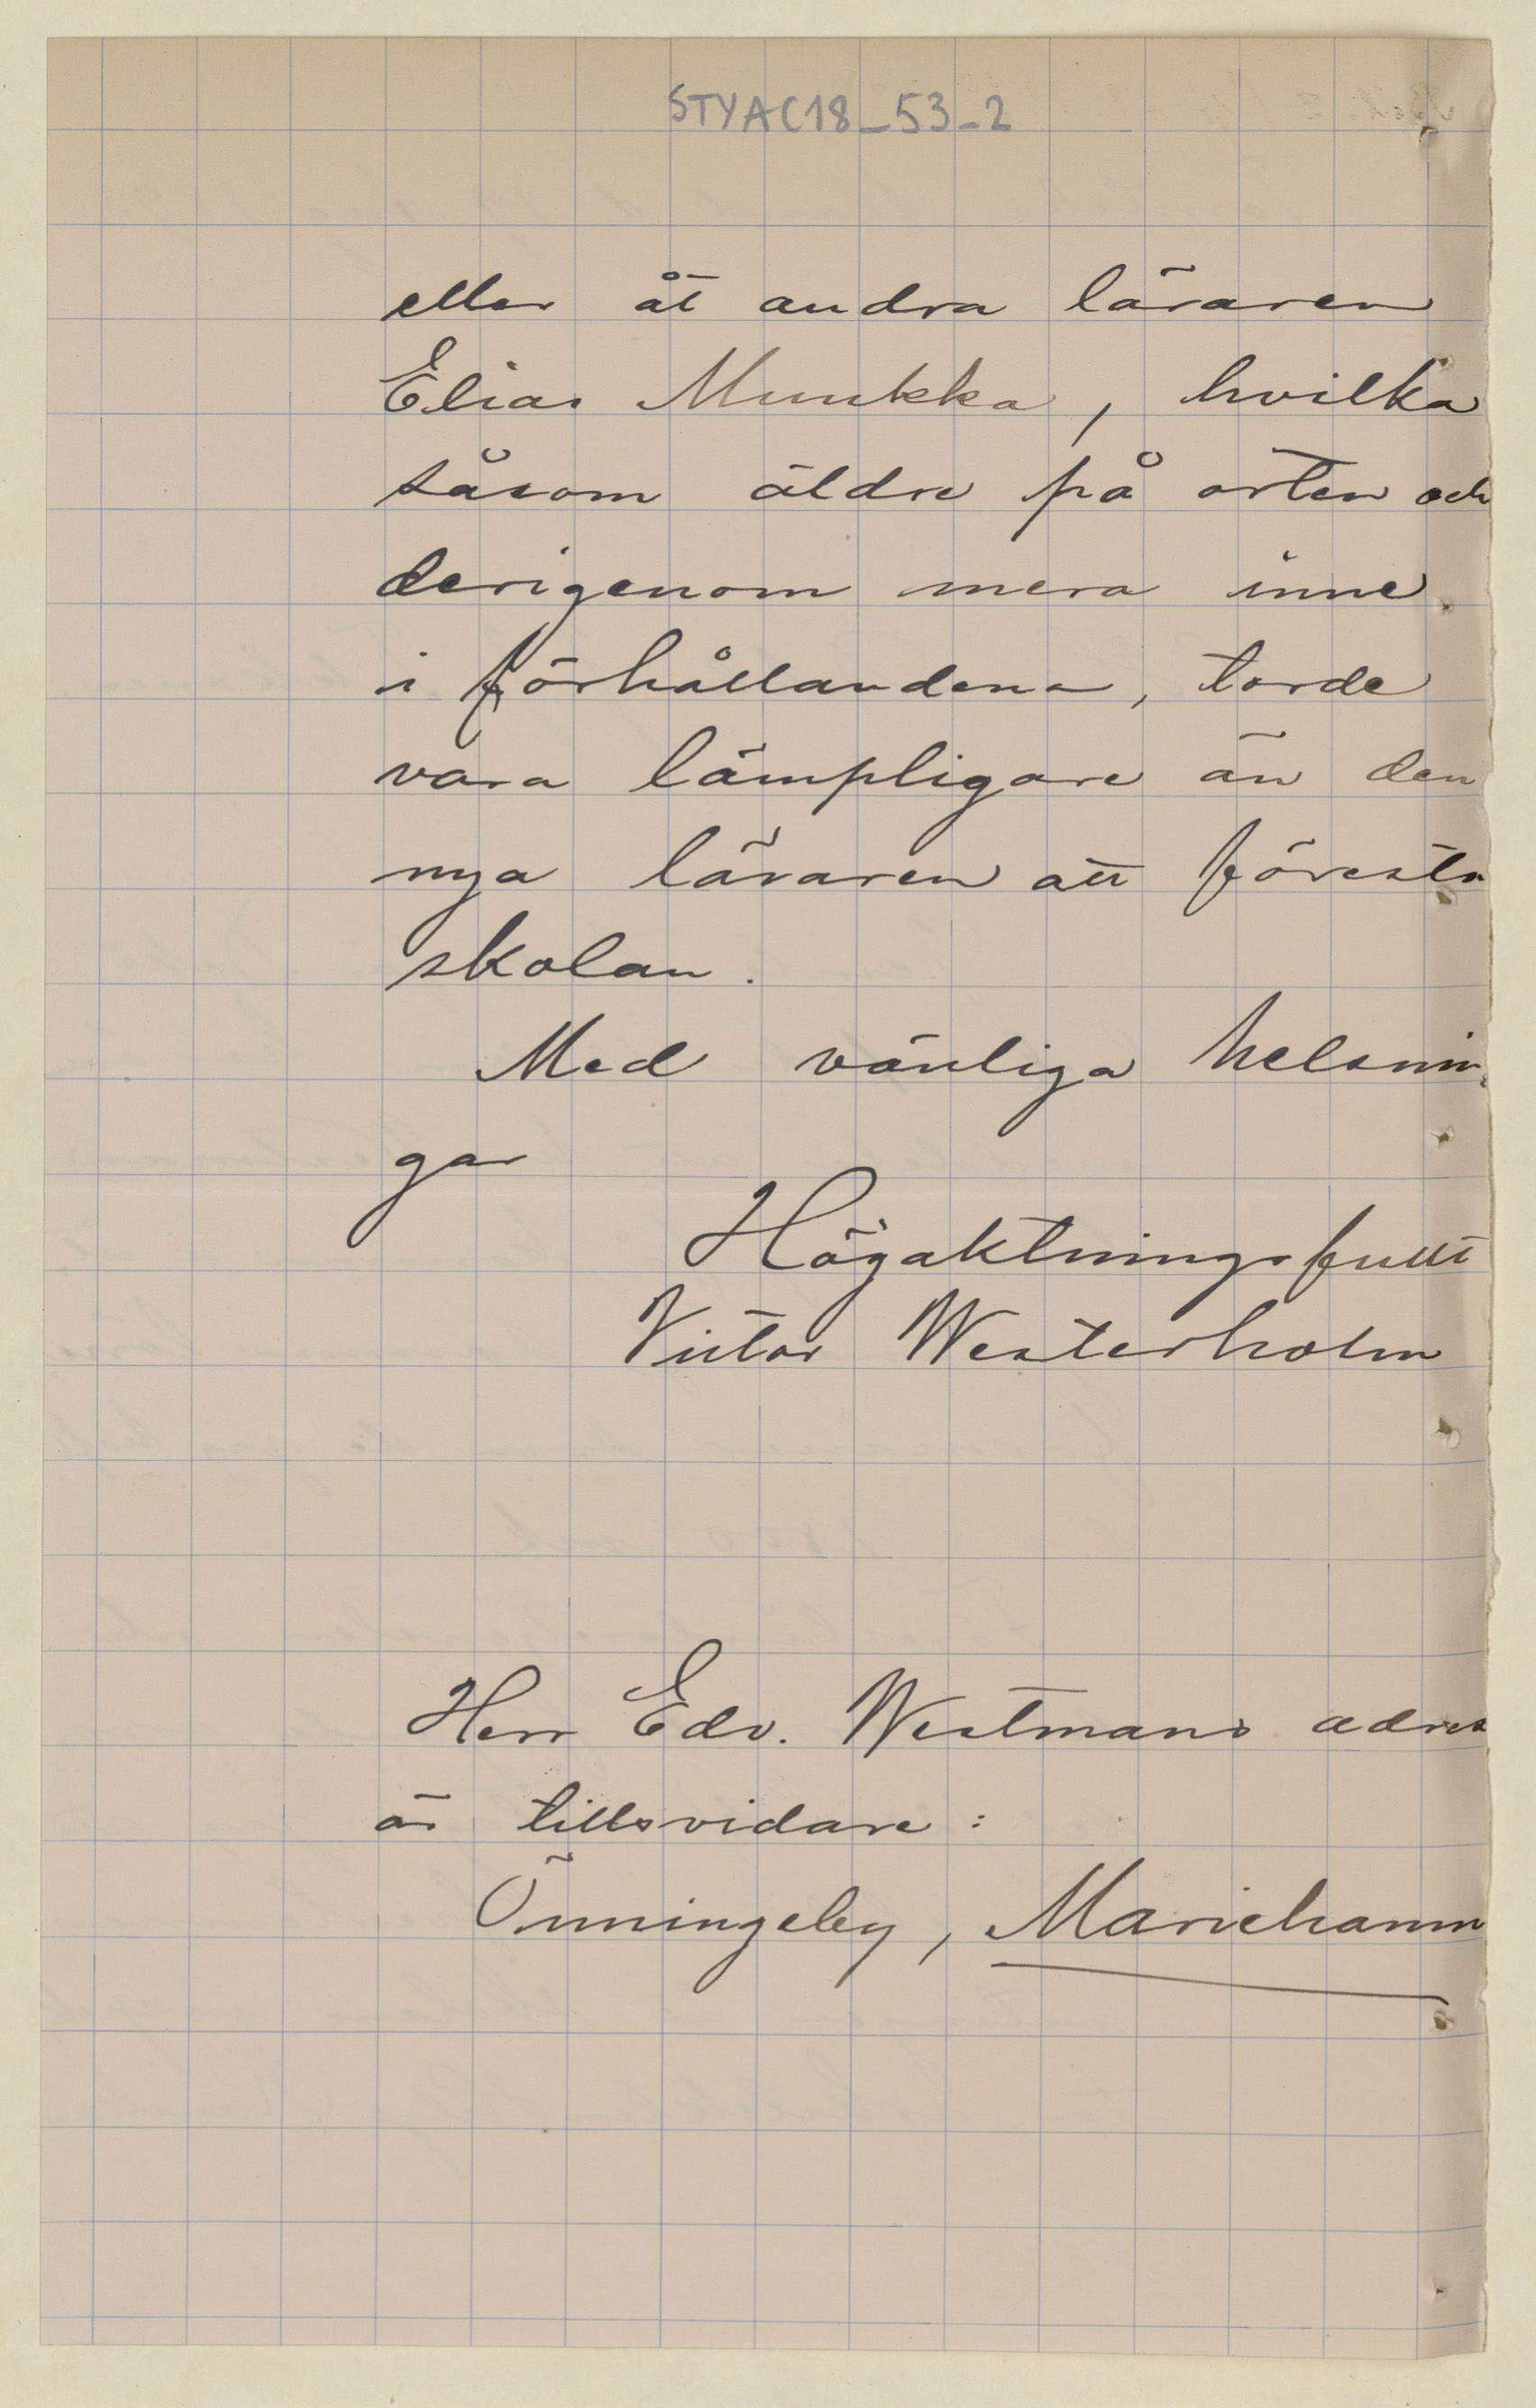 STYAC18_53_2
eller åt andra läraren
Elias Muukka, hvilka
såsom äldre på orten och
derigenom mera inne
i förhållandena, torde
vara lämpligare än den
nya läraren att förestå
skolan.
Med vänliga helsnin
gar
Högaktningsfullt
Victor Westerholm
Herr Edv. Westmans adress
är tillsvidare:
Önningeby, Mariehamn